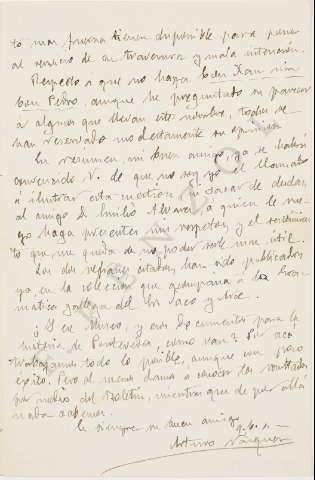 to mas fuerza tienen disponible para poner
al servicio de su travesura y mala intención.
Respecto á que no haya Xan nin
Pedro, aunque he preguntado su parecer
á algunos que llevan este nombre, todos se
han reservado modestamente su opinión
En resumen, mi buen amigo, ya se habrá
convencido V. de que no soy yo el llamado
á ilustrar esta cuestión y sacar de dudas,
al amigo D. Emilio Alvarez á quien le rue-
go haga presentes mis respetos, y el sentimien
to que me queda de no poder serle mas útil.
Los dos refranes citados, han sido publicados
ya, en la colección que acompaña á la Gra-
mática gallega del Sr. Saco y Arce.
¿Y ese Museo, y esos documentos para la
historia de Pontevedra, como van? Por acá
trabajamos todo lo posible, aunque con poco
éxito. Pero al menos damos á conocer los resultados
por medio del Boletín, mientras que de por allá
nada sabemos.
Es siempre su buen amigo
q. b. s. m.
Arturo Vázquez